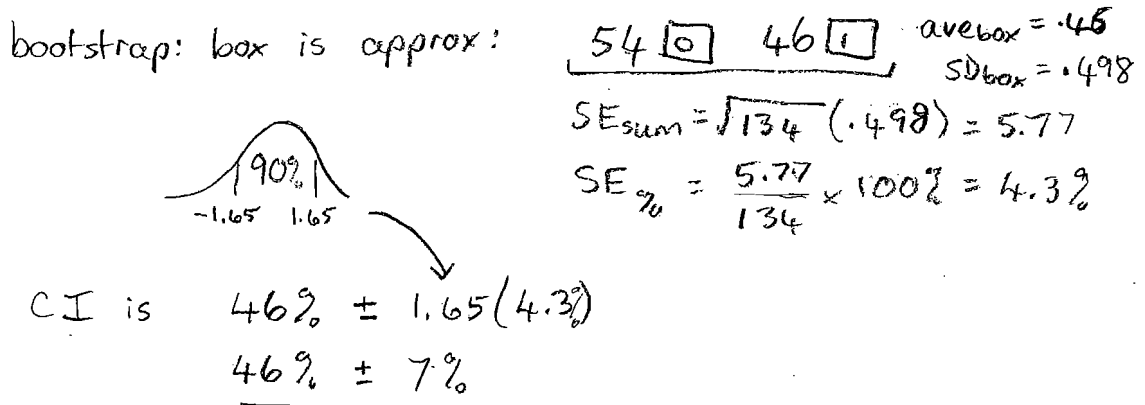 bootstrap: box is approx: 54 [0] 46 [1] avebox = .46
SDbox = .498
SEsum = √134 (.498) = 5.77
SE% = 5.77/134 × 100% = 4.3%
90%
-1.65 1.65
CI is 46% ± 1.65(4.3%)
46% ± 7%